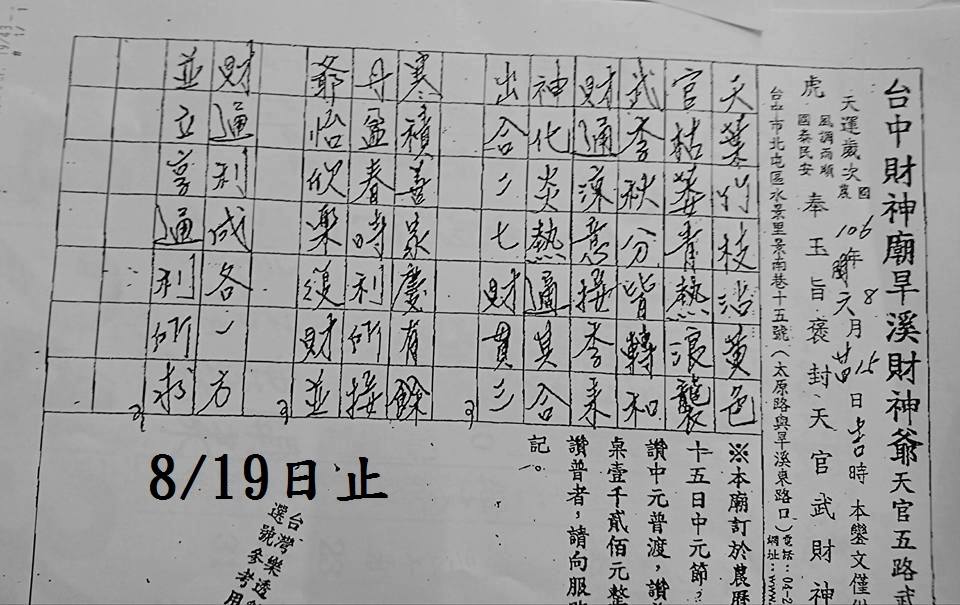 台中財神廟旱溪財神爺天官五路武
天運歲次 國農 106年 8月15日吉時 本鑾文僅供
風調雨順
國泰民安
虎 奉玉旨褒封天官武財神
台中市北屯區水景里景南巷十五號(太原路與旱溪東路口)電話:04-2
網址:www.
天葉竹枝沾黃色
官枯萎青熱浪襲
武季秋分皆轉和
財通涼意接季來
神化炎熱通其合
出合二七財貫三
寒積善家慶有餘
丹盆春時利所接
爺怡欣樂後財並
財通利成各一方
並立享通利所求
※本廟訂於農曆
十五日中元節
讚中元普渡,讚
桌壹千貳佰元整
讚普者,請向服
記。
8/19日止
台灣樂透
選號參考用